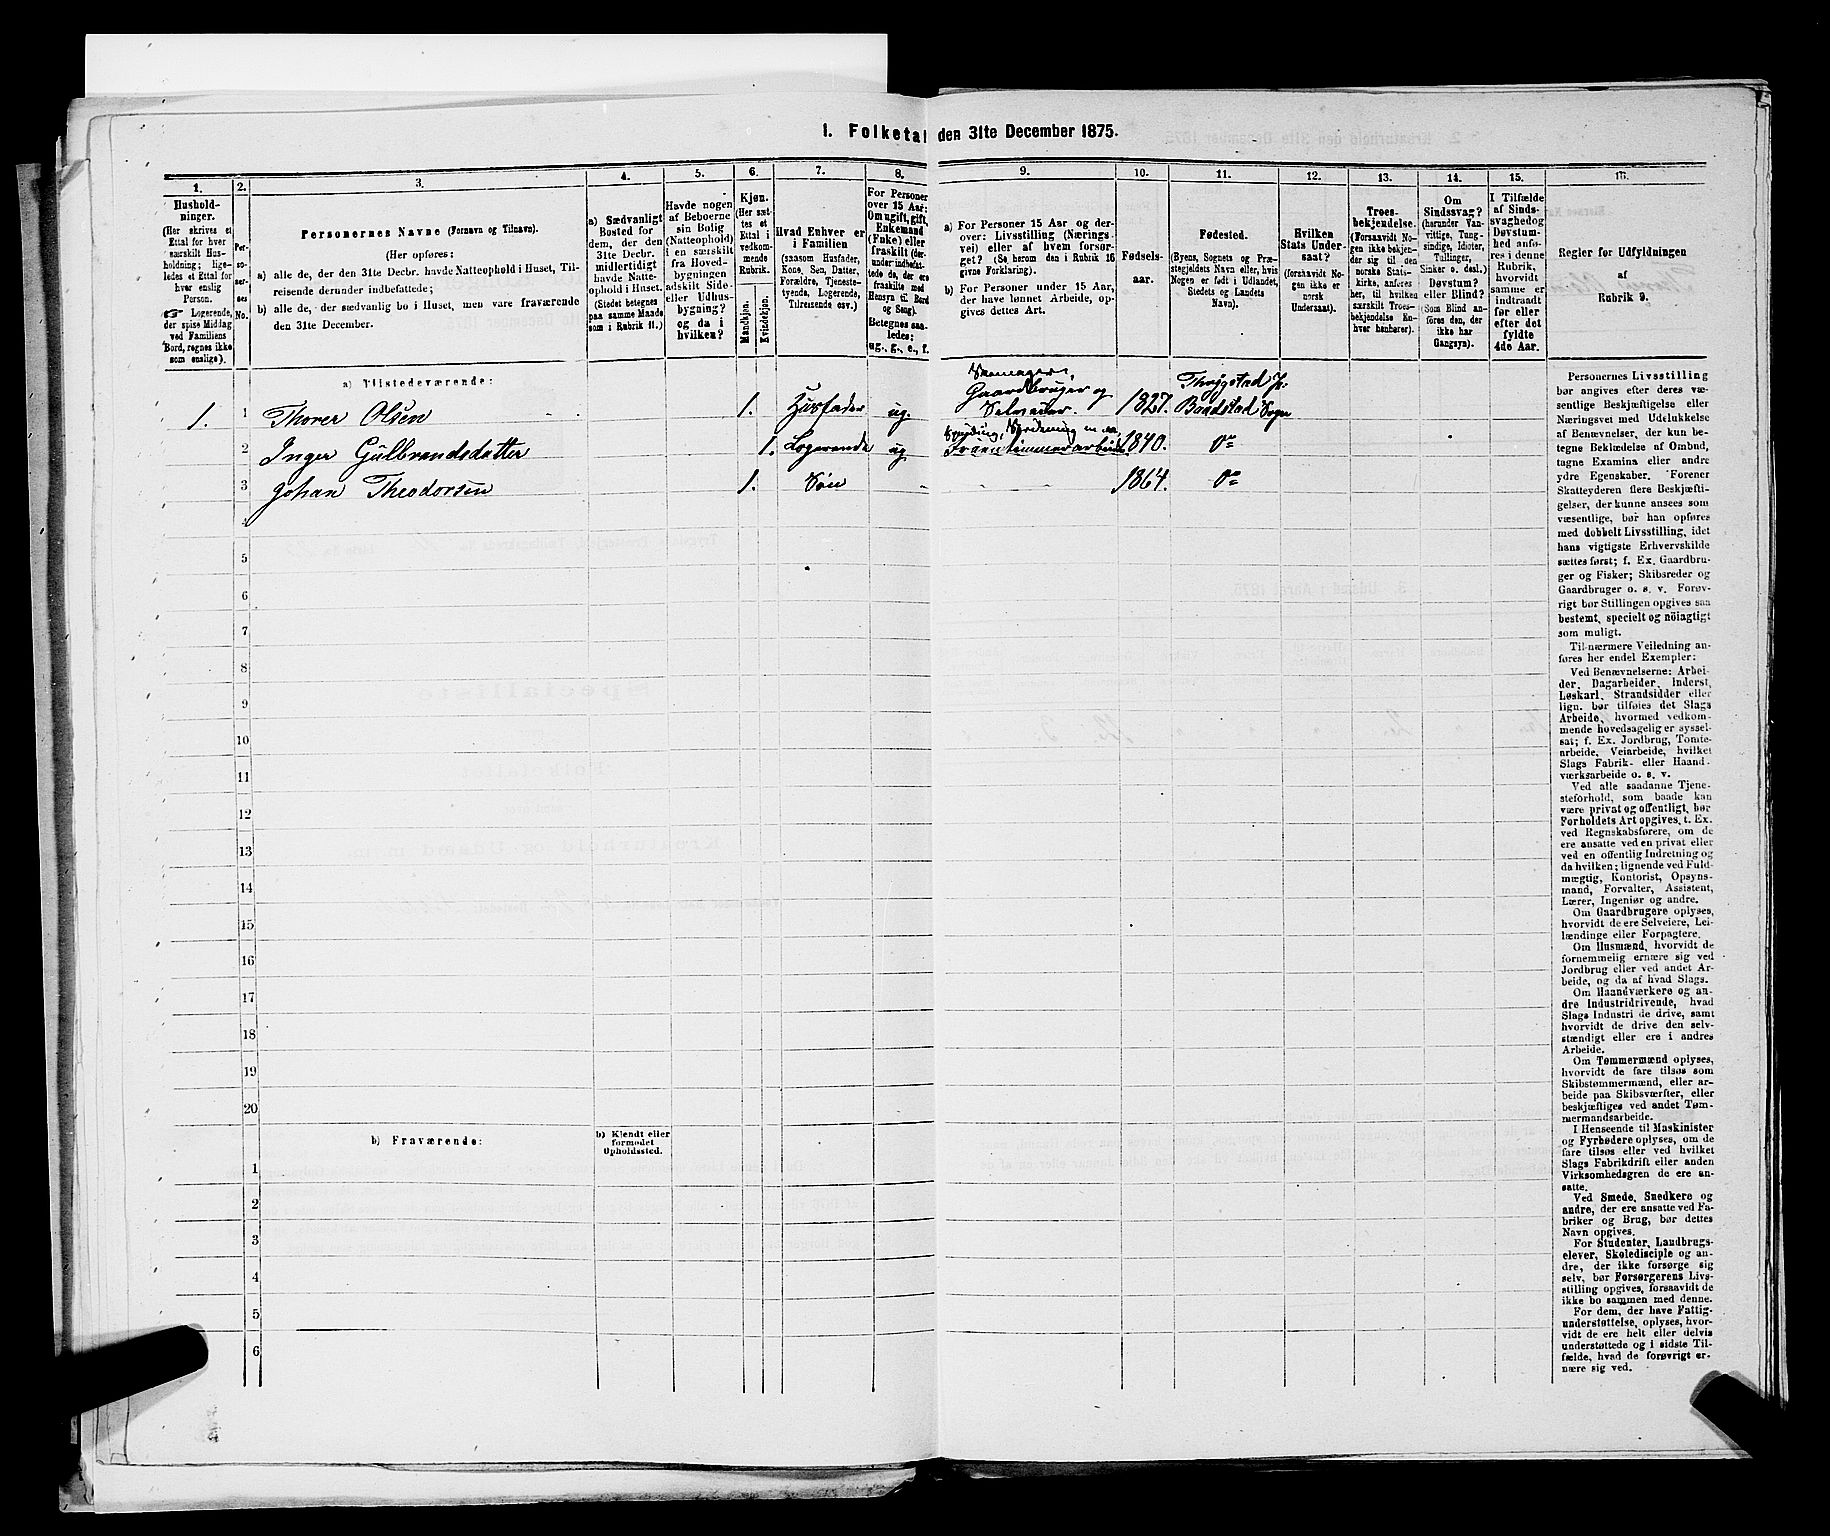 1. Folketal den 31te December 1875.
1.
Husholdninger.
(Her skrives et
Ettal for hver
særskilt Husholdning; ligeledes et Ettal for
hver enslig
Person.
☞ Logerende,
der spise Middag
ved Familiens
Bord, regnes ikke
som enslige).
2.
Personernes
No.
3.
Personernes Navne (Fornavn og Tilnavn).
(Her opføres:
a) alle de, der den 31te Decbr. havde Natteophold i Huset, Tilreisende derunder indbefattede;
b) alle de, der sædvanlig bo i Huset, men vare fraværende
den 31te December.
4.
a) Sædvanligt
Bosted for
dem, der den
31te Decbr.
midlertidigt
havde Natteophold i Huset.
(Stedet betegnes
paa samme Maade
som i Rubrik 11.)
5.
Havde nogen
af Beboerne
sin Bolig
(Natteophold)
i en særskilt
fra Hovedbygningen
adskilt Side-
eller Udhusbygning?
og da i
hvilken?
6.
Kjøn.
(Her sættes et
Ettal i
vedkommende
Rubrik.
Mandkjøn.
Kvindekjøn.
7.
Hvad Enhver er
i Familien
(saasom Husfader,
Kone, Søn, Datter,
Forældre, Tjenestetyende, Logerende,
Tilreisende osv.)
8.
For Personer
over 15 Aar:
Om ugift, gift,
Enkemand
(Enke) eller
fraskilt (derunder indbefattede de, der ere
fraskilte med
Hensyn til Bord
og Seng).
Betegnes saaledes:
ug., g., e., f.
9.
a) For Personer 15 Aar og derover: Livsstilling (Næringsvei) eller af hvem forsørget? (Se herom den i Rubrik 16
givne Forklaring).
b) For Personer under 15 Aar,
der have lønnet Arbeide, opgives dettes Art.
10.
Fødselsaar.
11.
Fødested.
(Byens, Sognets og Præstegjeldets Navn eller, hvis
Nogen er født i Udlandet,
Stedets og Landets
Navn).
12.
Hvilken
Stats Undersaat?
(forsaavidt Nogen ikke er
norsk
Undersaat).
13.
Troesbekjendelse.
(Forsaavidt Nogen ikke bekjender sig til den
norske Statskirke, anføres
her, til hvilken
særskilt Troesbekjendelse Enhver henhører).
14.
Om
Sindssvag?
(herunder Vanvittige, Tungsindige, Idioter,
Tullinger,
Sinker o. desl.)
Døvstum?
eller Blind?
(Som Blind anføres den, der
ikke har
Gangsyn).
15.
I Tilfælde
af Sindssvaghed og
Døvstumhed anføres i denne
Rubrik,
hvorvidt
samme er
indtraadt
før eller
efter det
fyldte
4de Aar.
16.
Regler for Udfyldningen
af
Rubrik 9.
a) Tilstedeværende:
1. 1 Thorer Olsen 1. Husfader ug. Gaardbruger og Selveier 1827. Baadstad Sogn
2 Inger Gulbrandsdatter 1. Logerende ug 1840. Do
3 Johan Theodorsen 1. Søn 1864. Do
4
5
6
7
8
9
10
11
12
13
14
15
16
17
18
19
20
b) Fraværende:
b) Kjendt eller
formodet
Opholdssted.
1
2
3
4
5
6
Personernes Livsstilling
bør angives efter deres væsentlige Beskjæftigelse eller
Næringsvei med Udelukkelse
af Benævnelser, der kun betegne Beklædelse af Ombud,
tagne Examina eller andre
ydre Egenskaber. Forener
Skatteyderen flere Beskjæftigelser, der kunne ansees som
væsentlige, bør han opføres
med dobbelt Livsstilling, idet
hans vigtigste Erhvervskilde
sættes først; f. Ex. Gaardbruger og Fisker; Skibsreder og
Gaardbruger o. s. v. Forøvrigt bør Stillingen opgives saa
bestemt, specielt og nöiagtigt
som muligt.
Til nærmere Veiledning anføres her endel Exempler:
Ved Benævnelserne: Arbeider, Dagarbeider, Inderst,
Løskarl, Strandsidder eller
lign. bør tilføies det Slags
Arbeide, hvormed vedkommende hovedsagelig er sysselsat; f. Ex. Jordbrug, Tomtearbeide, Veiarbeide, hvilket
Slags Fabrik- eller Haandværksarbeide o. s. v.
Ved alle saadanne Tjenesteforhold, som baade kan
være privat og offentligt, bør
Forholdets Art opgives, t. Ex.
ved Regnskabsførere, om de
ere ansatte ved en privat eller
ved en offentlig Indretning og
da hvilken; lignende ved Fuldmægtig, Kontorist, Opsynsmand, Forvalter, Assistent,
Lærer, Ingeniør og andre.
Om Gaardbrugere oplyses,
hvorvidt de ere Selveiere, Leilændinge eller Forpagtere.
Om Husmænd, hvorvidt de
fornemmelig ernære sig ved
Jordbrug eller ved andet Arbeide, og da af hvad Slags.
Om Haandværkere og andre Industridrivende, hvad
Slags Industri de drive, samt
hvorvidt de drive den selvstændigt eller ere i andres
Arbeide.
Om Tømmermænd oplyses,
hvorvidt de fare tilsøs som
Skibstømmermænd, eller arbeide paa Skibsværfter, eller
beskjæftiges ved andet Tømmermandsarbeide.
I Henseende til Maskinister
og Fyrbødere oplyses, om de
fare tilsøs eller ved hvilket
Slags Fabrikdrift eller anden
Virksomhedsgren de ere ansatte.
Ved Smede, Snedkere og
andre, der ere ansatte ved Fabriker og Brug, bør dettes
Navn opgives.
For Studenter, Landbrugselever, Skoledisciple og andre, der ikke forsørge sig
selv, bør Forsørgerens Livsstilling opgives, forsaavidt de
ikke bo sammen med denne.
For dem, der have Fattigunderstøttelse, oplyses, hvorvidt de ere helt eller delvis
understøttede og i sidste Tilfælde, hvad de forøvrigt ernære sig ved.